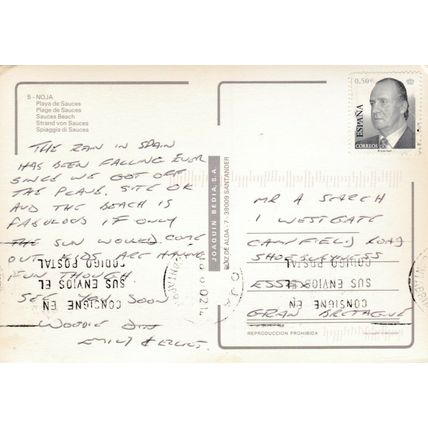 5 - NOJA
Playa de Sauces
Plage de Sauces
Sauces Beach
Strand von Sauces
Spiaggia di Sauces
THE RAIN IN SPAIN
HAS BEEN FALLING EVER
SINCE WE GOT OFF
THE PLANE. SITE OK
AND THE BEACH IS
FABULOUS IF ONLY
THE SUN WOULD COME
OUT KIDS ARE HAVING
FUN THOUGH
SEE YOU SOON
EMILY &
JOAQUIN BEDIA, S.A.
RUIZ DE ALDA, 7 - 39009 SANTANDER
0,50€
ESPAÑA
CORREOS
MR A SEARCH
1 WESTGATE
ROAD
SHOEBURYNESS
ESSEX
GRAN BRETAGNE
CONSIGNE EN
SUS ENVIOS EL
CODIGO POSTAL
CONSIGNE EN
SUS ENVIOS EL
CODIGO POSTAL
REPRODUCCION PROHIBIDA